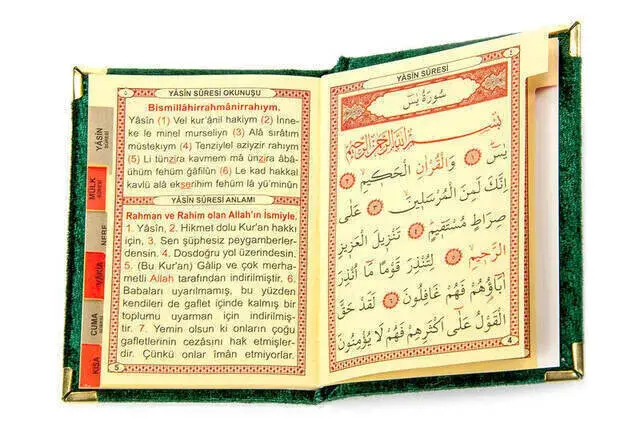 YÂSÎN SÛRESİ OKUNUŞU
Bismillâhirrahmânirrahıym.
Yâsîn (1) Vel kur'ânil hakiym (2) İnne-
ke le minel murseliyn (3) Alâ sırâtım
müstekıym (4) Tenziylel aziyzir rahıym
(5) Li tünzira kavmem mâ ünzira âbâ-
ühüm fehüm gâfilûn (6) Le kad hakkal
kavlü alâ ekserihim fehüm lâ yü'minûn
YÂSÎN SÛRESİ ANLAMI
Rahman ve Rahim olan Allah'ın İsmiyle.
1. Yâsîn, 2. Hikmet dolu Kur'an hakkı
için, 3. Sen şüphesiz peygamberler-
densin. 4. Dosdoğru yol üzerindesin.
5. (Bu Kur'an) Gâlip ve çok merha-
metli Allah tarafından indirilmiştir. 6.
Babaları uyarılmamış, bu yüzden
kendileri de gaflet içinde kalmış bir
toplumu uyarman için indirilmiş-
tir. 7. Yemin olsun ki onların çoğu
gafletlerinin cezasını hak etmişler-
dir. Çünkü onlar îmân etmiyorlar.
5
YÂSÎN SÛRESİ
MÜLK SÛRESİ
CUMA
KISA
YÂSÎN SÛRESİ
سُورَةُ يٰسٓ
بِسْمِ اللهِ الرَّحْمٰنِ الرَّحِيمِ
يٰسٓ ﴿١﴾ وَالْقُرْاٰنِ الْحَكِيمِ ﴿٢﴾
اِنَّكَ لَمِنَ الْمُرْسَلِينَ ﴿٣﴾ عَلٰى
صِرَاطٍ مُسْتَقِيمٍ ﴿٤﴾ تَنْزِيلَ الْعَزِيزِ
الرَّحِيمِ ﴿٥﴾ لِتُنْذِرَ قَوْمًا مَٓا اُنْذِرَ
اٰبَٓاؤُهُمْ فَهُمْ غَافِلُونَ ﴿٦﴾ لَقَدْ حَقَّ
الْقَوْلُ عَلٰٓى اَكْثَرِهِمْ فَهُمْ لَا يُؤْمِنُونَ
4